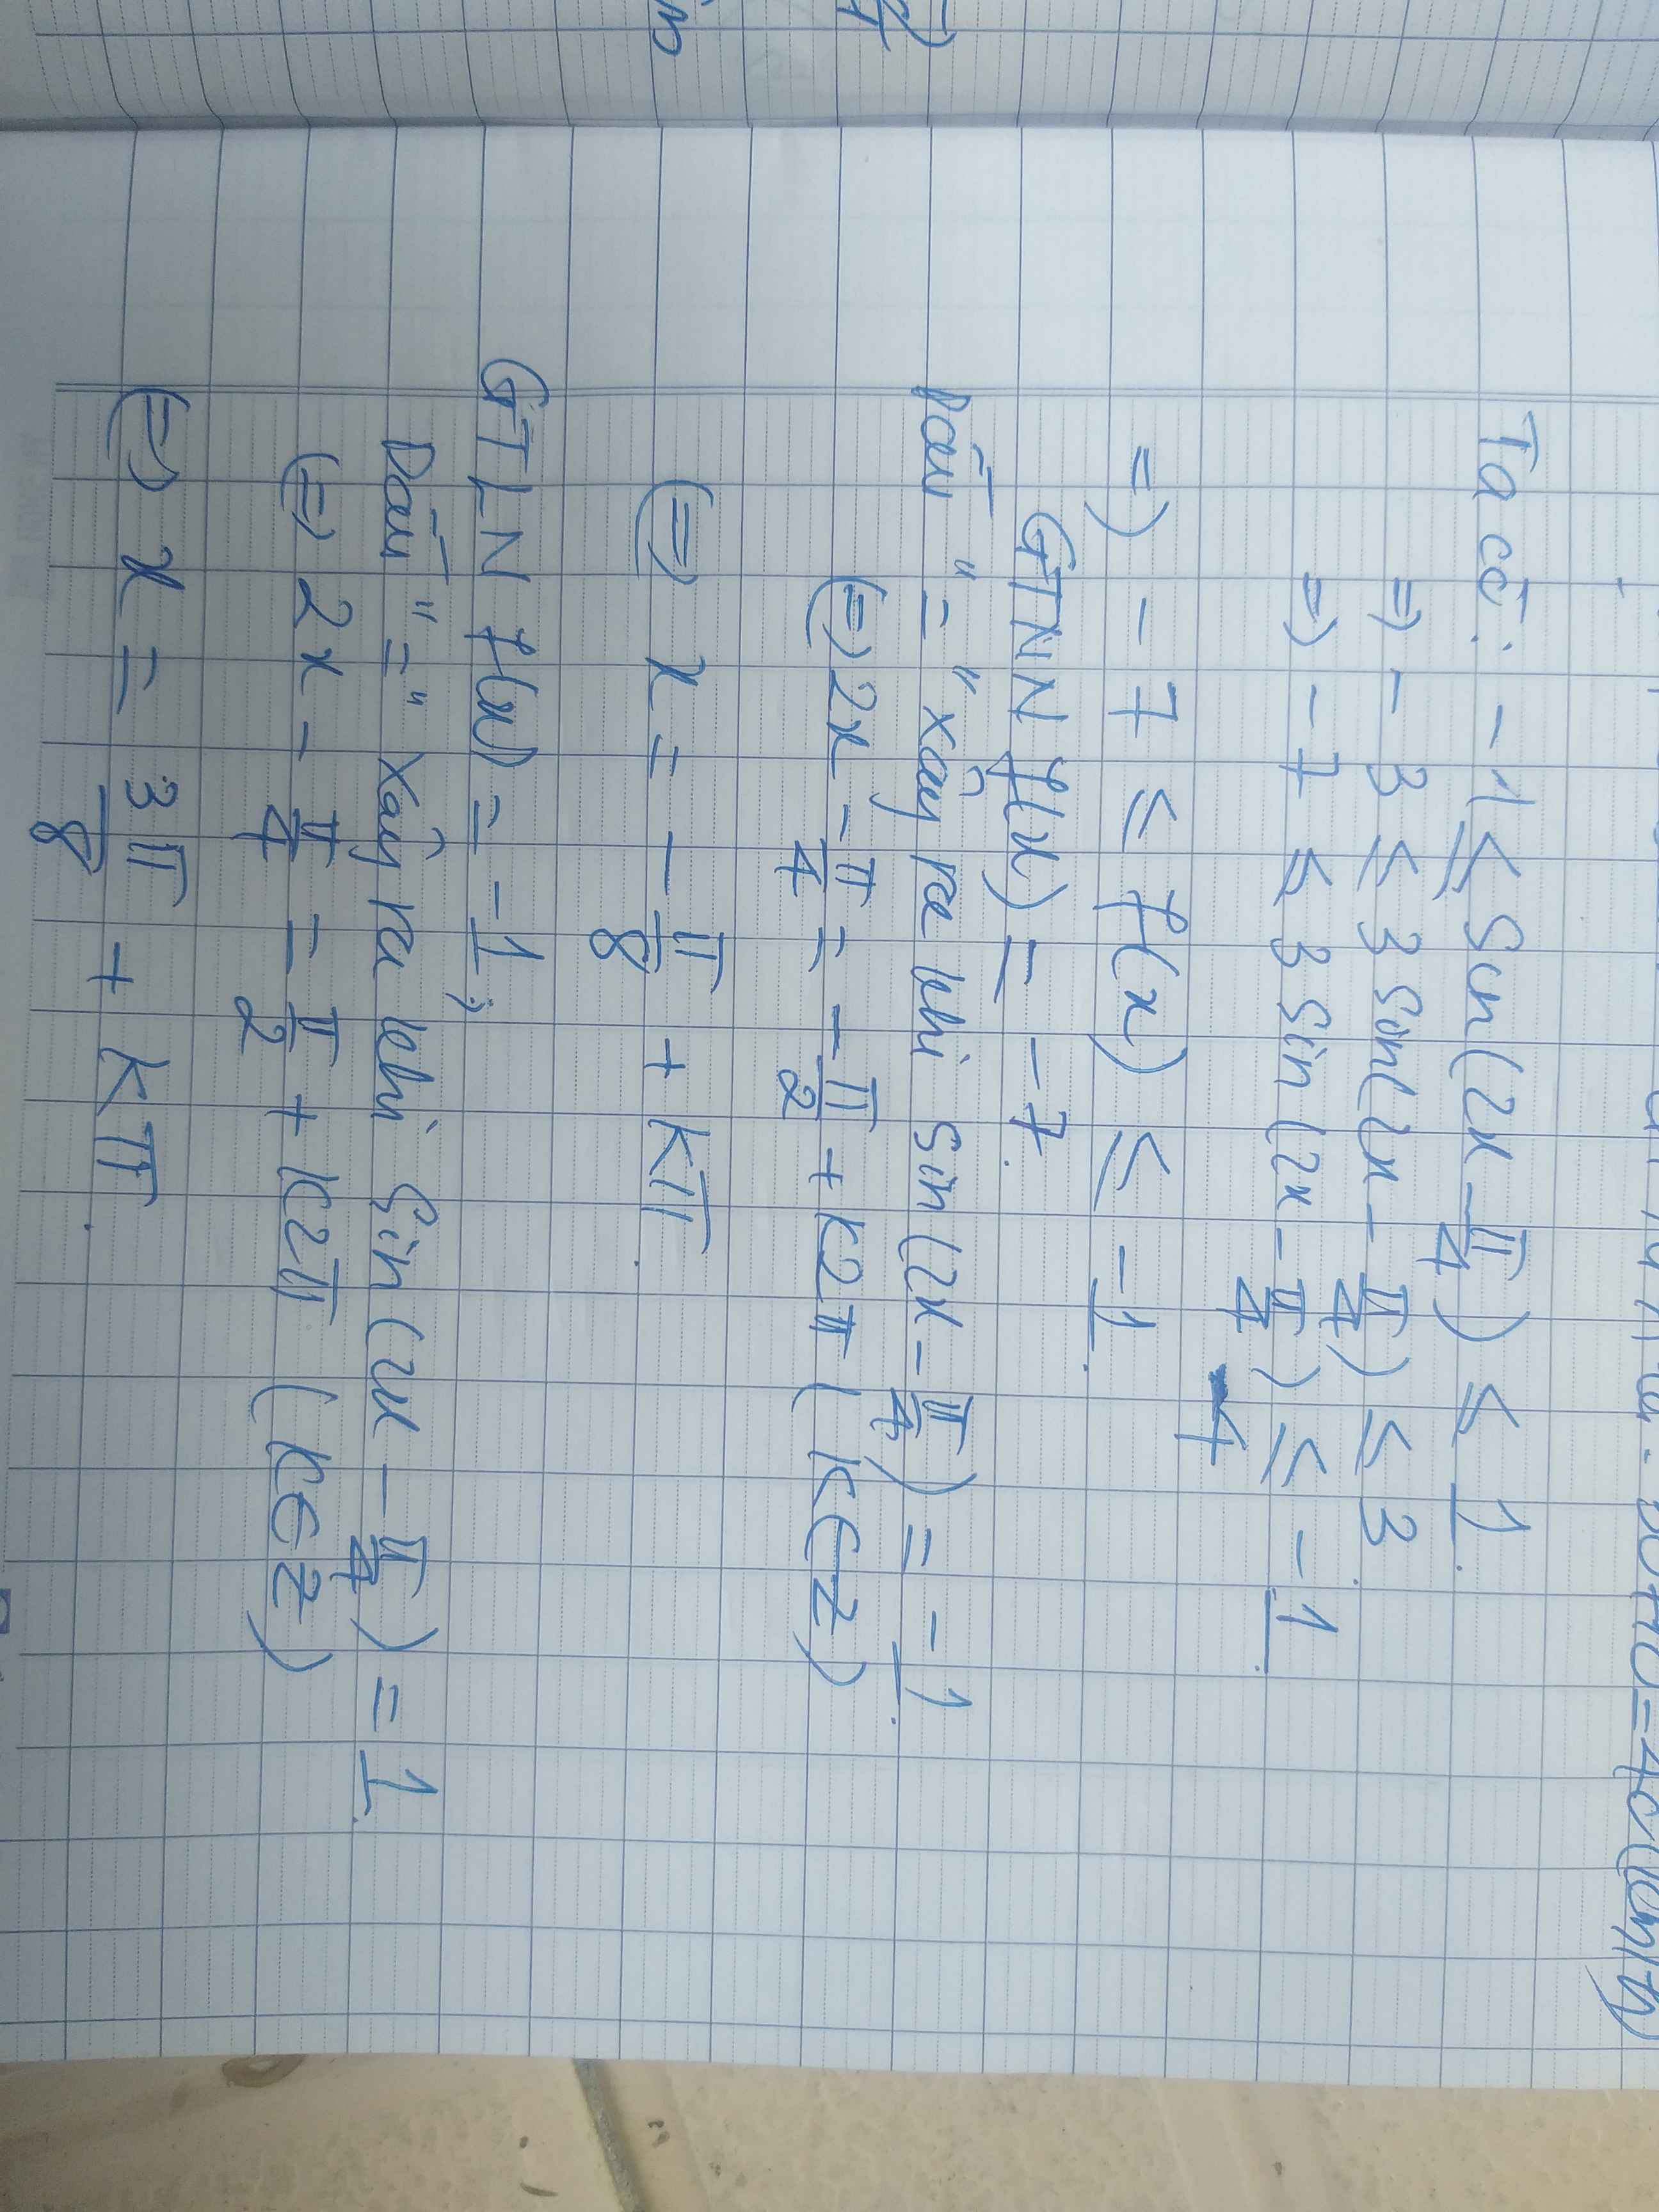 Ta có: -1 ≤ Sin(2x - π/4) ≤ 1.
=> -3 ≤ 3 Sin(2x - π/4) ≤ 3.
=> -7 ≤ 3 Sin(2x - π/4) ≤ -1.
4
=> -7 ≤ f(x) ≤ -1.
GTNN f(x) = -7.
Dấu "=" xảy ra khi Sin(2x - π/4) = -1.
<=> 2x - π/4 = -π/2 + k2π (k∈Z)
<=> x = -π/8 + kπ.
GTLN f(x) = -1;
Dấu "=" xảy ra khi Sin(2x - π/4) = 1.
<=> 2x - π/4 = π/2 + k2π (k∈Z)
<=> x = 3π/8 + kπ.